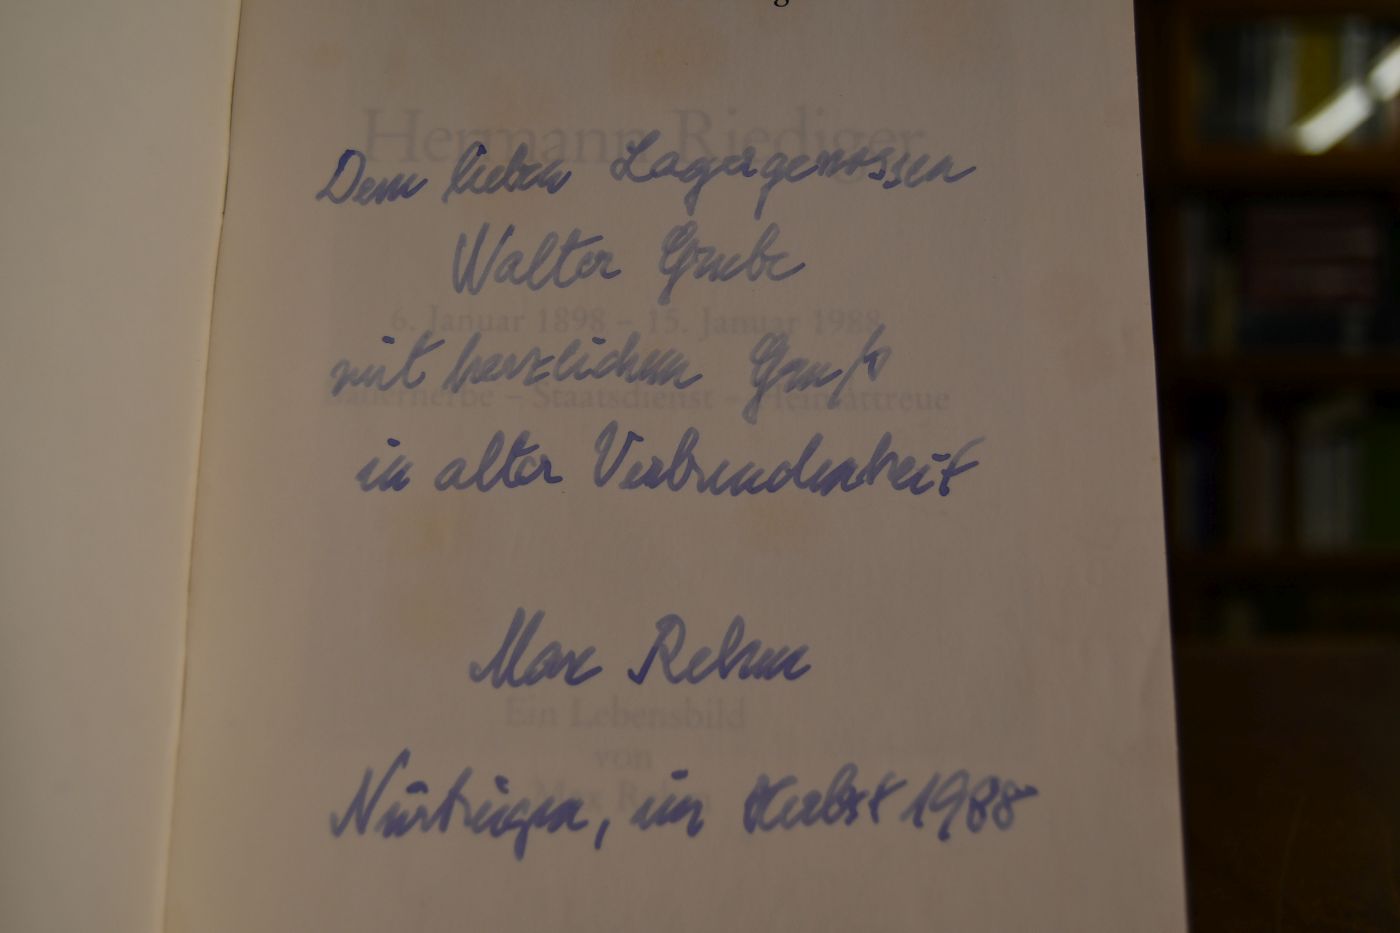 Hermann Riediger
Dem lieben Lagergenossen
Walter Grube
6. Januar 1898 – 15. Januar 1988
mit herzlichem Gruß
Bauernerbe – Staatsdienst – Heimattreue
in alter Verbundenheit
Max Rehm
Ein Lebensbild
von
Max Rehm
Nürtingen, im Herbst 1988